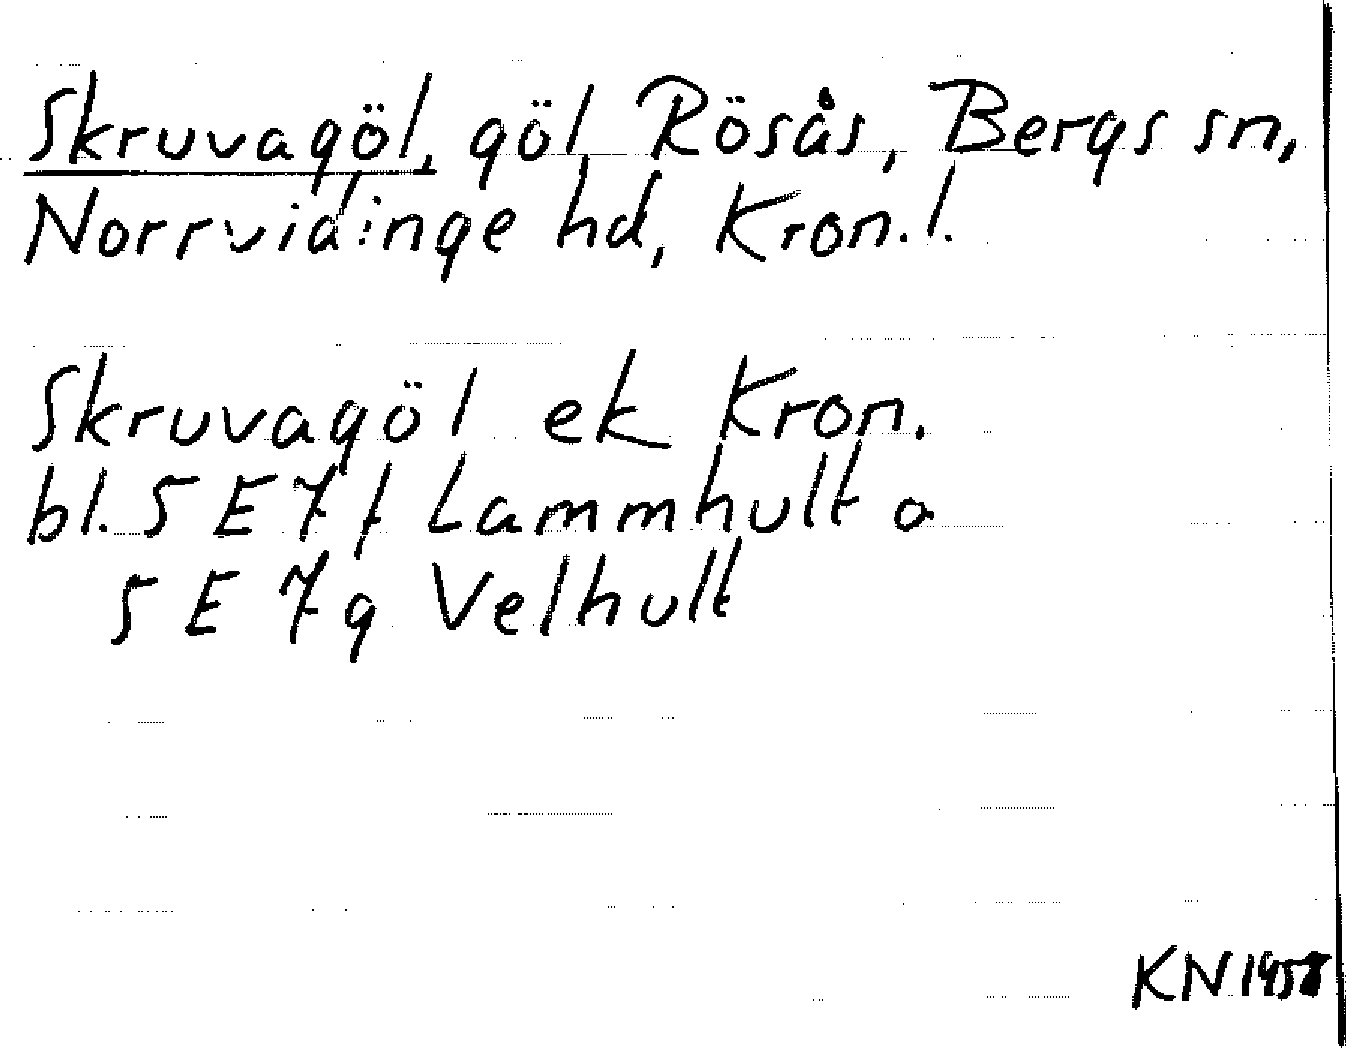 Skruvagöl, göl Rösås, Bergs sn,
Norrvidinge hd, Kron. l.
Skruvagöl ek Kron.
bl. 5 E 7 f Lammhult o
5 E 7 g Velhult
KN